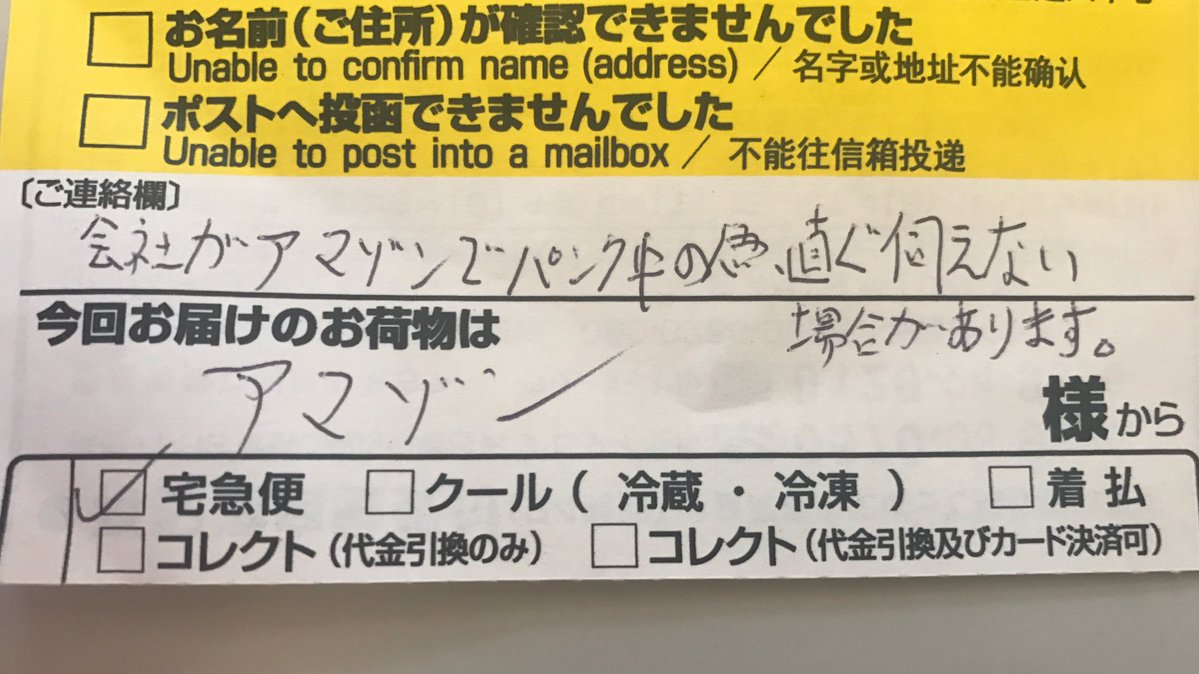 お名前(ご住所)が確認できませんでした
Unable to confirm name (address) / 名字或地址不能确认
ポストへ投函できませんでした
Unable to post into a mailbox / 不能往信箱投递
〔ご連絡欄〕
会社がアマゾンでパンク中の為、直ぐ伺えない
場合があります。
今回お届けのお荷物は
アマゾン
様から
宅急便 クール( 冷蔵 ・ 冷凍 ) 着払
コレクト(代金引換のみ) コレクト(代金引換及びカード決済可)